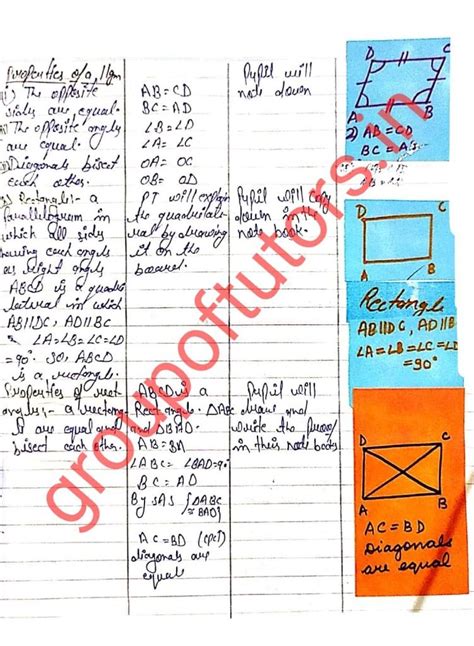 Properties of a ||gm
i) The opposite
sides are equal.
ii) The opposite angles
are equal.
iii) Diagonals bisect
each other.
Rectangle :- a
parallelogram in
which all sides
having each angles
as right angles
ABCD is a quadri
lateral in which
AB||DC, AD||BC
∠A=∠B=∠C=∠D
=90° so, ABCD
is a rectangle.
Properties of rect
angles:- a rectang
are equal and
bisect each other.
AB=CD
BC=AD
∠B=∠D
∠A=∠C
OA=OC
OB=OD
PT will explain
the quadrilate
ral by drawing
it on the
board.
ABCD is a
Rectangle. ΔABC
and ΔBAD.
AB=BA
∠ABC= ∠BAD=90°
BC=AD
By SAS [ΔABC
≅ BAD]
AC=BD (cpct)
diagonals are
equal
Pupil will
note down
Pupil will copy
down in the
note book.
Pupil will
draw and
write the proof
in their note books
D C
A B
2) AB=CD
D
A B
Rectangle
AB||DC, AD||B
∠A=∠B=∠C=∠D
=90°
D C
A B
AC=BD
Diagonals
are equal
groupoftutors.in